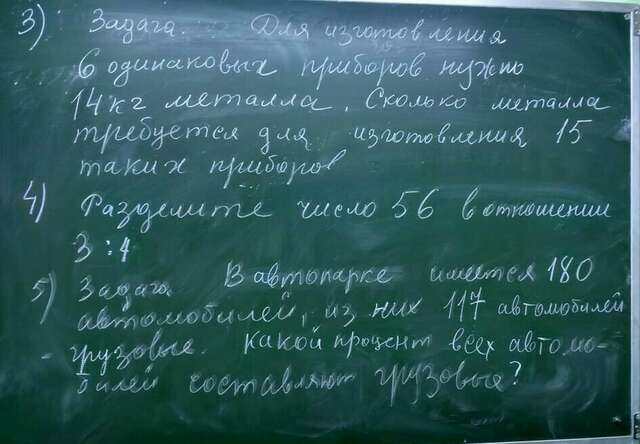 3) Задача. Для изготовления
6 одинаковых приборов нужно
14 кг металла. Сколько металла
требуется для изготовления 15
таких приборов
4) Разделите число 56 в отношении
3 : 4
5) Задача В автопарке имеется 180
автомобилей, из них 117 автомобилей
- грузовые. какой процент всех автомо-
билей составляют грузовые?